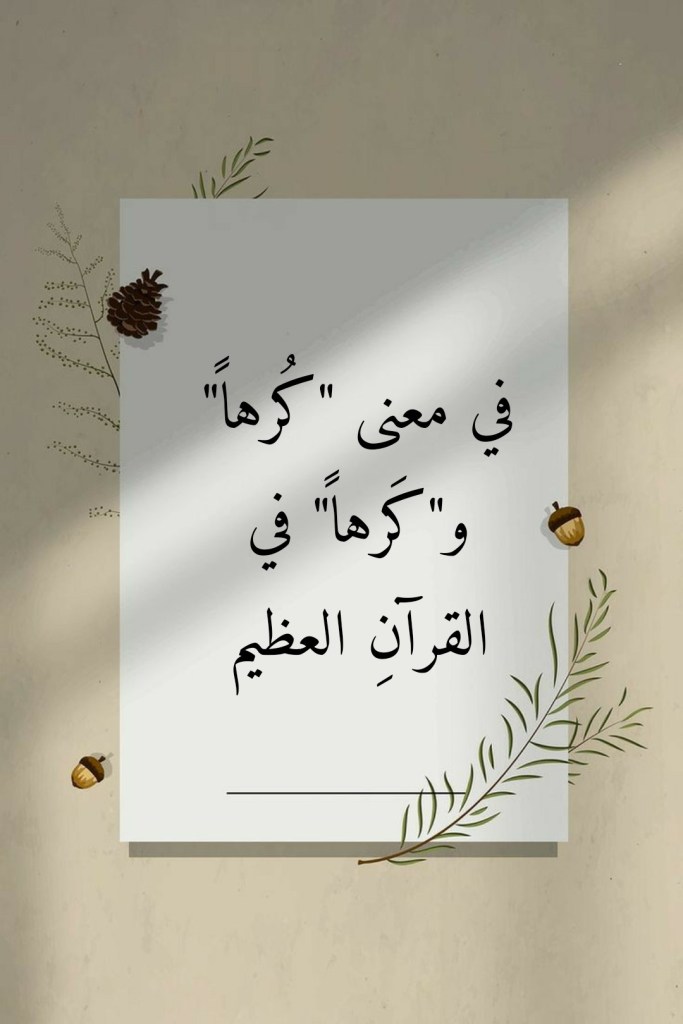 في معنى "كُرهاً"
و"كَرهاً" في
القرآنِ العظيم